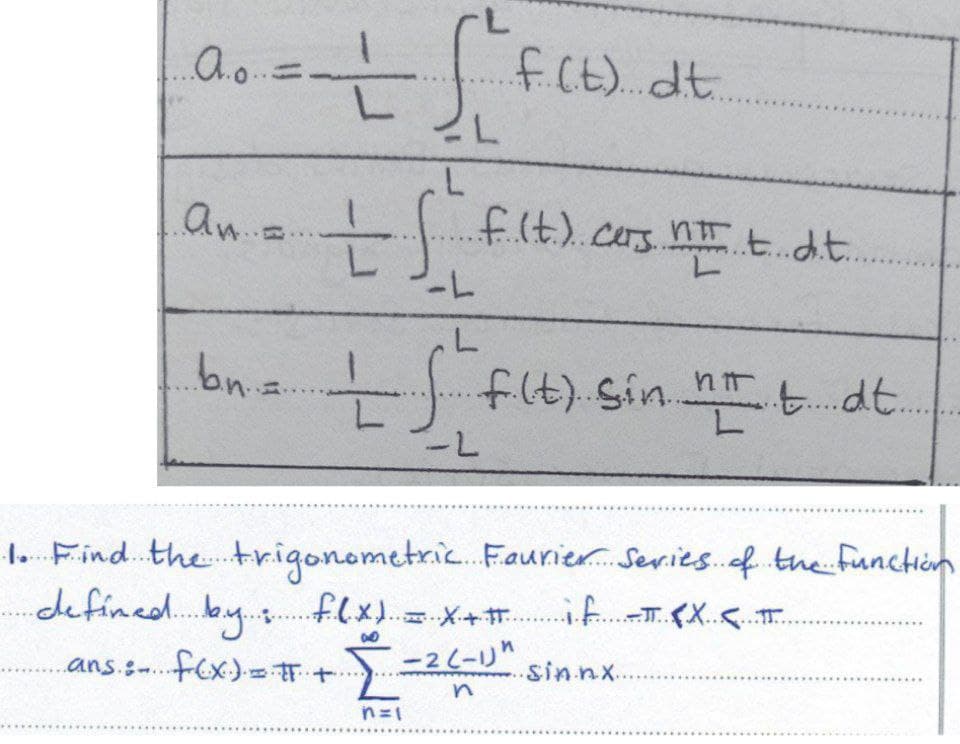 a₀ = 1/L ∫_{-L}^{L} f(t) dt
aₙ = 1/L ∫_{-L}^{L} f(t) cos nπ/L t dt
bₙ = 1/L ∫_{-L}^{L} f(t) sin nπ/L t dt
1. Find the trigonometric Fourier series of the function
defined by : f(x) = x + π if -π < x < π
ans :- f(x) = π + ∑_{n=1}^{∞} -2(-1)ⁿ/n sin nx